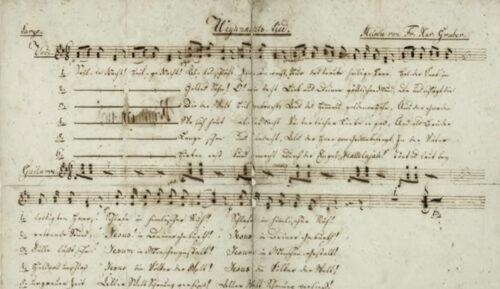 Weynachts-Lied.
Melodie von Fr. Xav. Gruber.
Stille Nacht! Heilige Nacht! Alles schläft. Einsam wacht. Nur das traute heilige Paar.
Gottes Sohn! O! wie lacht Lieb aus deinem göttlichen Mund,
Die der Welt Heil gebracht, Aus des Himmels goldenen Höhn, Aus der Gnaden
Wo sich heut alle Macht Väterlicher Liebe ergoß, Und als Bruder
Lange schon uns bedacht, Als der Herr vom Grimme befreyt, In der Väter
Hirten erst kund gemacht Durch der Engel Hallelujah! Tönt es laut bey
Guitarre
Schlafe in himmlischer Ruh! Schlafe in himmlischer Ruh!
rettende Stund; Jesus! in deiner Geburt! Jesus in deiner Geburt!
Fülle Jesum in Menschengestalt! Jesum in Menschengestalt!
huldvoll umschloß Jesus die Völker der Welt! Jesus die Völker der Welt!
urgrauer Zeit Aller Welt Schonung verhieß! Aller Welt Schonung verhieß!